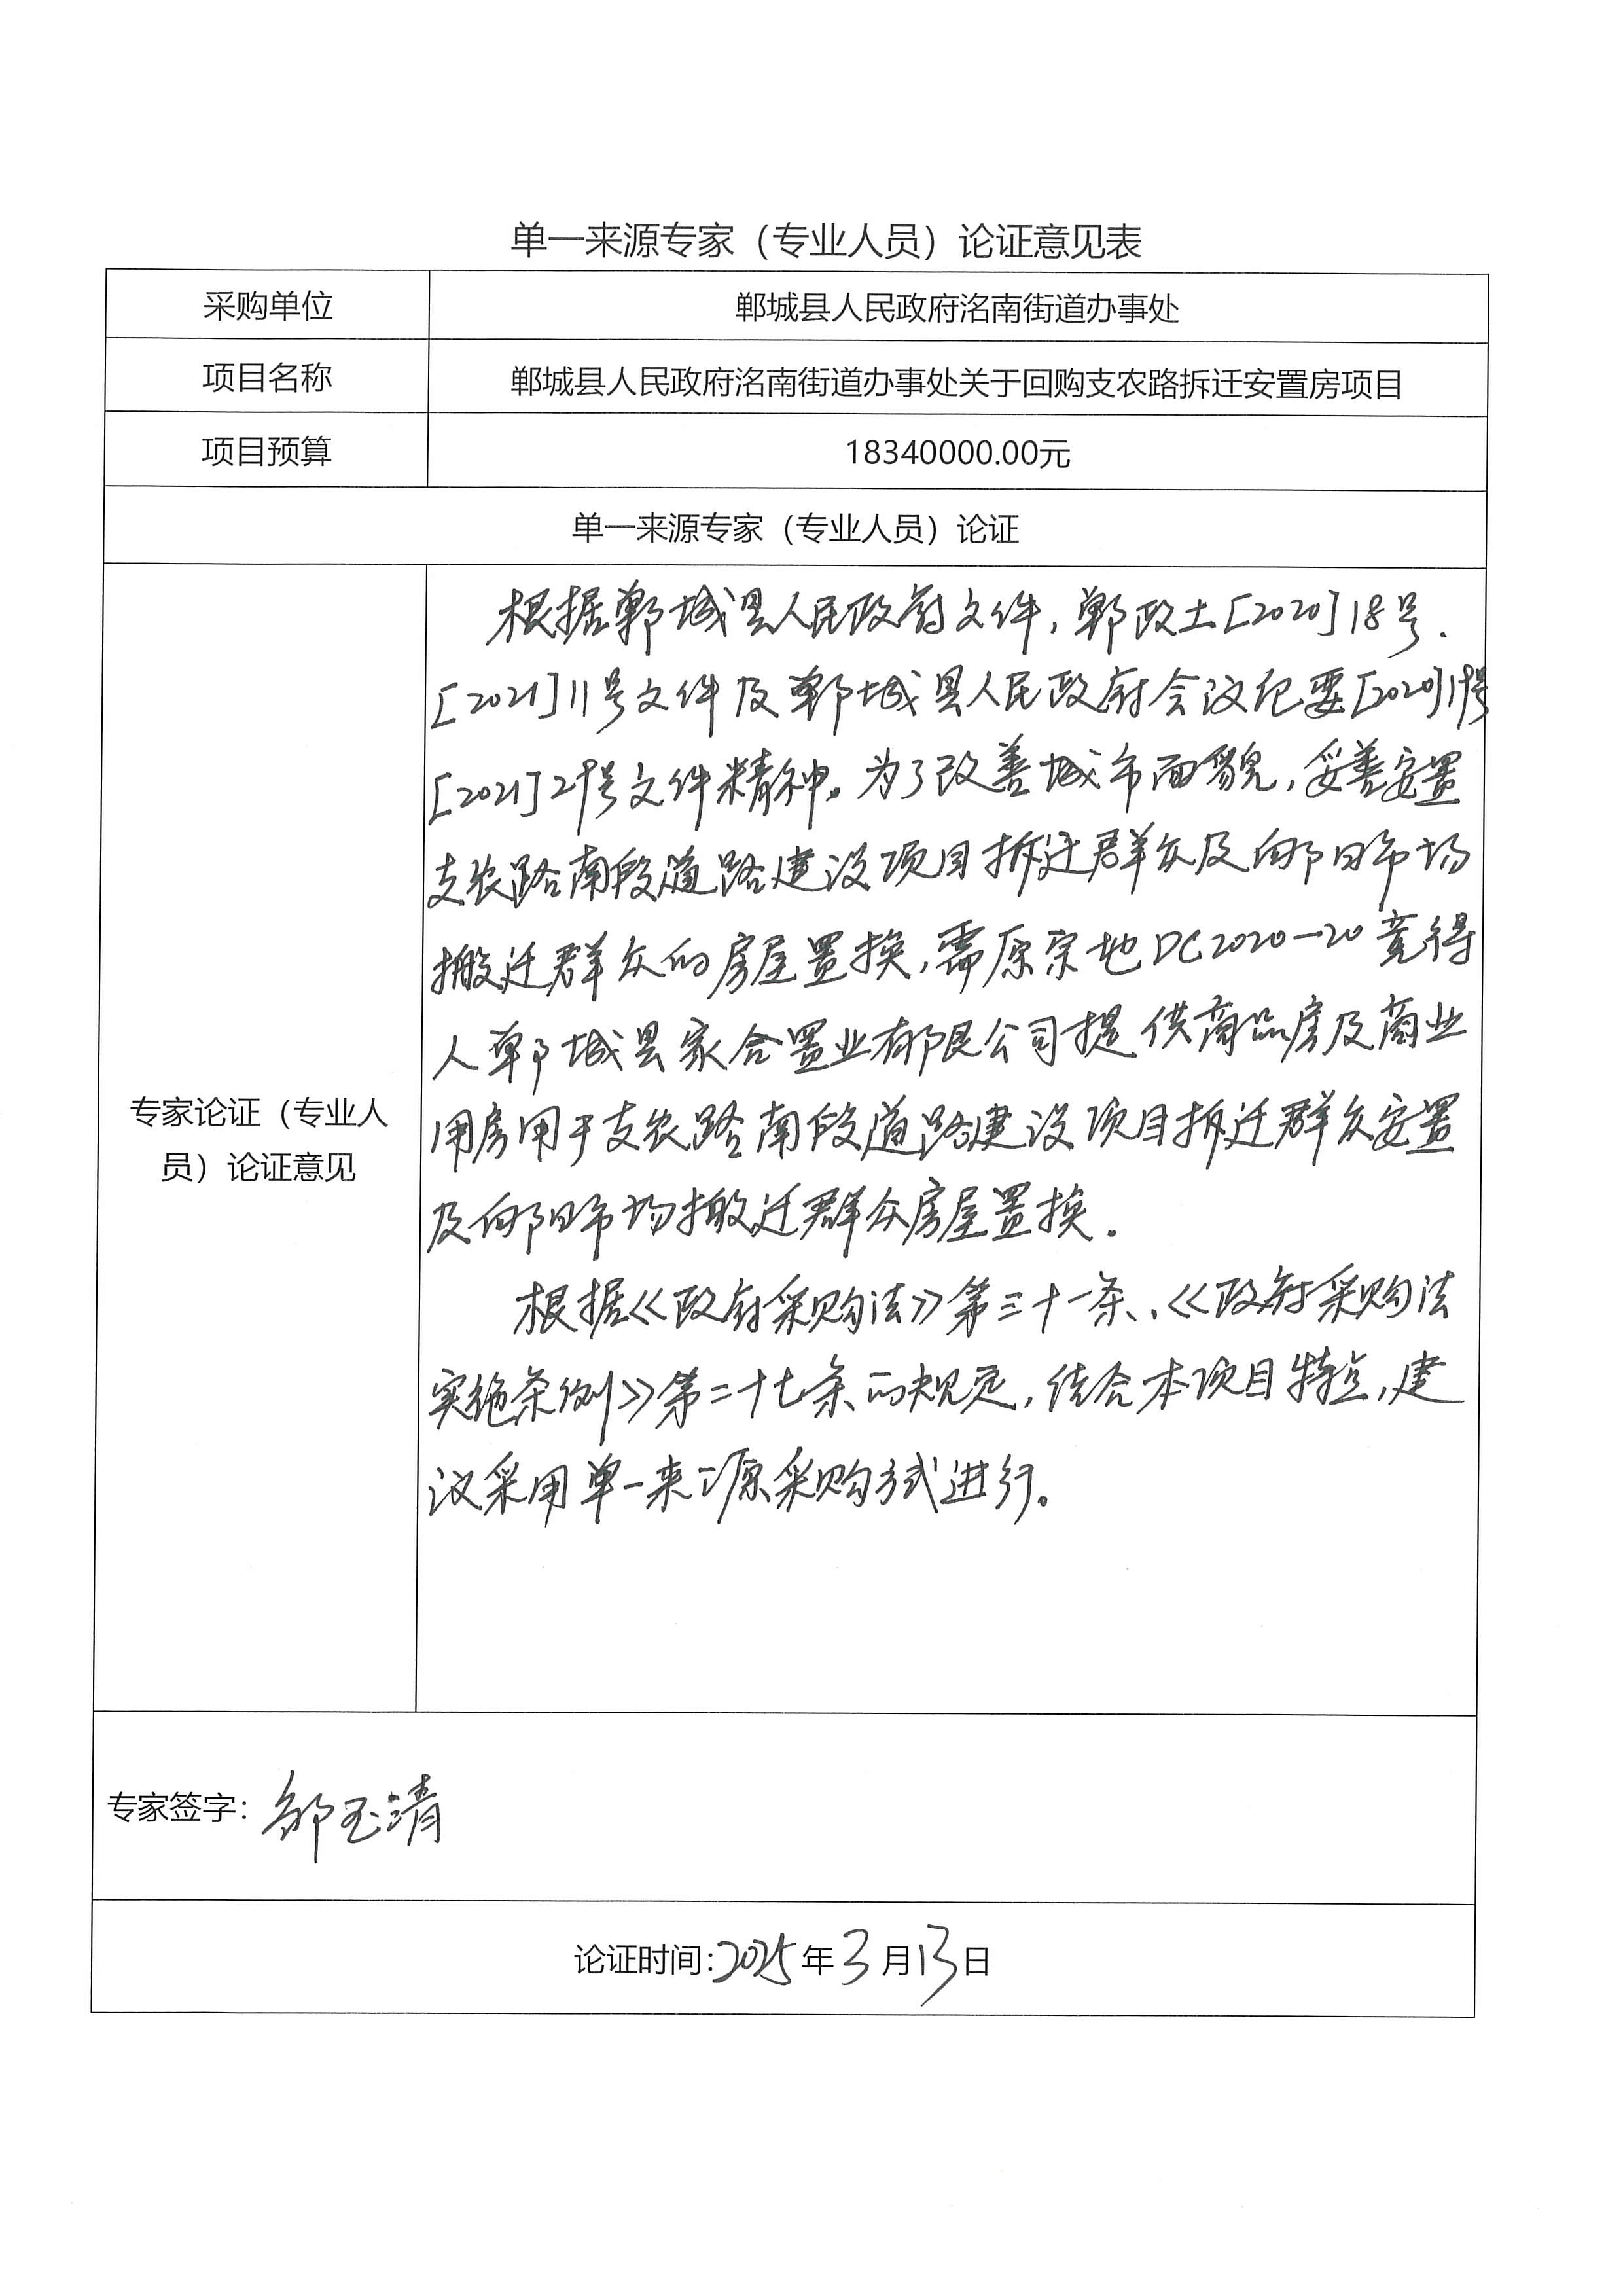 单一来源专家（专业人员）论证意见表
采购单位
郸城县人民政府洺南街道办事处
项目名称
郸城县人民政府洺南街道办事处关于回购支农路拆迁安置房项目
项目预算
18340000.00元
单一来源专家（专业人员）论证
专家论证（专业人
员）论证意见
根据郸城县人民政府文件，郸政土[2020]18号.
[2021]11号文件及郸城县人民政府会议纪要[2020]19号
[2021]29号文件精神。为了改善城市面貌，妥善安置
支农路南段道路建设项目拆迁群众及向阳市场
搬迁群众的房屋置换，需原宗地DC2020-20竞得
人郸城县家合置业有限公司提供商品房及商业
用房用于支农路南段道路建设项目拆迁群众安置
及向阳市场搬迁群众房屋置换.
根据《政府采购法》第三十一条、《政府采购法
实施条例》第二十七条的规定，结合本项目特点，建
议采用单一来源采购方式进行。
专家签字：邹玉清
论证时间：2025年3月13日